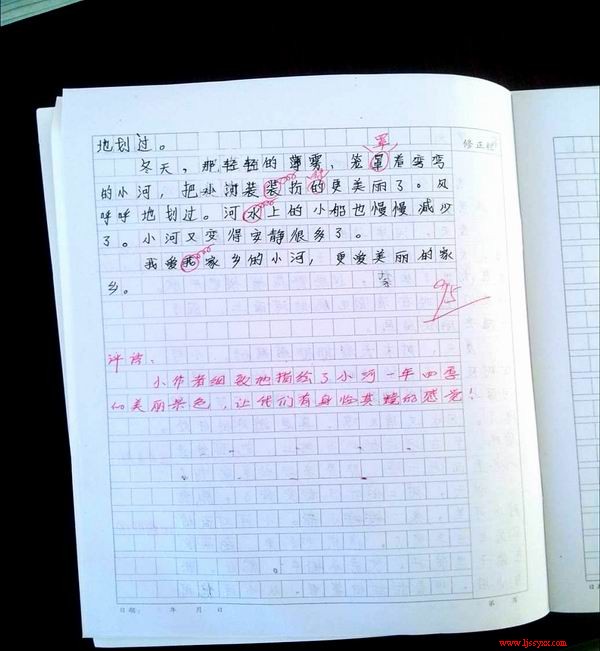 地划过。
修正栏
罩
冬天，那轻轻的薄雾，笼罩着弯弯
的小河，把小河装装扮的更美丽了。风
呼呼地划过。河水上的小船也慢慢减少
了。小河又变得安静很多了。
我爱我家乡的小河，更爱美丽的家
乡。
95
评语：
小作者细致地描绘了小河一年四季
的美丽景色，让我们有身临其境的感觉！
日期： 年 月 日
第 页
www.ljssyxx.com